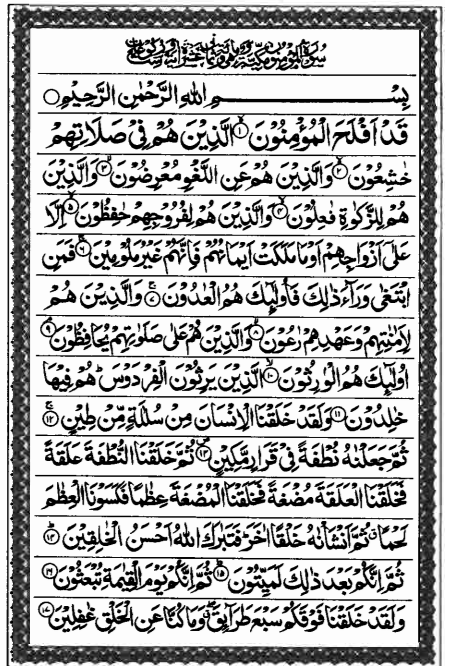 بِسْمِ اللهِ الرَّحْمٰنِ الرَّحِيْمِ
قَدْ اَفْلَحَ الْمُؤْمِنُوْنَ ۱ الَّذِيْنَ هُمْ فِيْ صَلَاتِهِمْ
خٰشِعُوْنَ ۲ وَالَّذِيْنَ هُمْ عَنِ اللَّغْوِ مُعْرِضُوْنَ ۳ وَالَّذِيْنَ
هُمْ لِلزَّكٰوةِ فٰعِلُوْنَ ۴ وَالَّذِيْنَ هُمْ لِفُرُوْجِهِمْ حٰفِظُوْنَ ۵ اِلَّا
عَلٰٓى اَزْوَاجِهِمْ اَوْ مَا مَلَكَتْ اَيْمَانُهُمْ فَاِنَّهُمْ غَيْرُ مَلُوْمِيْنَ ۶ فَمَنِ
ابْتَغٰى وَرَآءَ ذٰلِكَ فَاُولٰٓئِكَ هُمُ الْعٰدُوْنَ ۷ وَالَّذِيْنَ هُمْ
لِاَمٰنٰتِهِمْ وَعَهْدِهِمْ رٰعُوْنَ ۸ وَالَّذِيْنَ هُمْ عَلٰى صَلَوٰتِهِمْ يُحَافِظُوْنَ ۹
اُولٰٓئِكَ هُمُ الْوٰرِثُوْنَ ۱۰ الَّذِيْنَ يَرِثُوْنَ الْفِرْدَوْسَ هُمْ فِيْهَا
خٰلِدُوْنَ ۱۱ وَلَقَدْ خَلَقْنَا الْاِنْسَانَ مِنْ سُلٰلَةٍ مِّنْ طِيْنٍ ۱۲
ثُمَّ جَعَلْنٰهُ نُطْفَةً فِيْ قَرَارٍ مَّكِيْنٍ ۱۳ ثُمَّ خَلَقْنَا النُّطْفَةَ عَلَقَةً
فَخَلَقْنَا الْعَلَقَةَ مُضْغَةً فَخَلَقْنَا الْمُضْغَةَ عِظٰمًا فَكَسَوْنَا الْعِظٰمَ
لَحْمًا ثُمَّ اَنْشَاْنٰهُ خَلْقًا اٰخَرَ فَتَبٰرَكَ اللهُ اَحْسَنُ الْخٰلِقِيْنَ ۱۴
ثُمَّ اِنَّكُمْ بَعْدَ ذٰلِكَ لَمَيِّتُوْنَ ۱۵ ثُمَّ اِنَّكُمْ يَوْمَ الْقِيٰمَةِ تُبْعَثُوْنَ ۱۶
وَلَقَدْ خَلَقْنَا فَوْقَكُمْ سَبْعَ طَرَآئِقَ وَمَا كُنَّا عَنِ الْخَلْقِ غٰفِلِيْنَ ۱۷